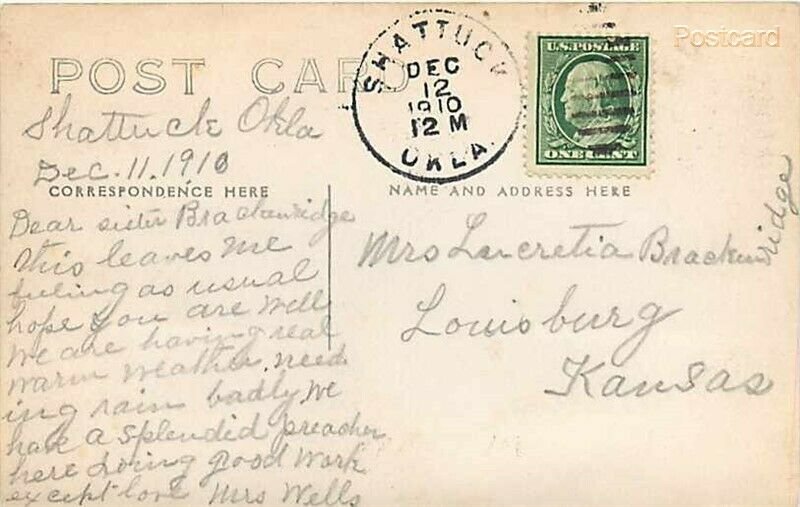 Postcard
POST CARD
SHATTUCK
DEC
12
1910
12 M
OKLA.
U.S. POSTAGE
ONE CENT
Shattuck Okla
Dec. 11. 1910
CORRESPONDENCE HERE
Dear sister Brackenridge
this leaves me
feeling as usual
hope you are well
we are having real
warm weather, need
ing rain badly, we
have a splendid preacher
here doing good work
except love Mrs Wells
NAME AND ADDRESS HERE
Mrs Lucretia Brackenridge
Louisburg
Kansas